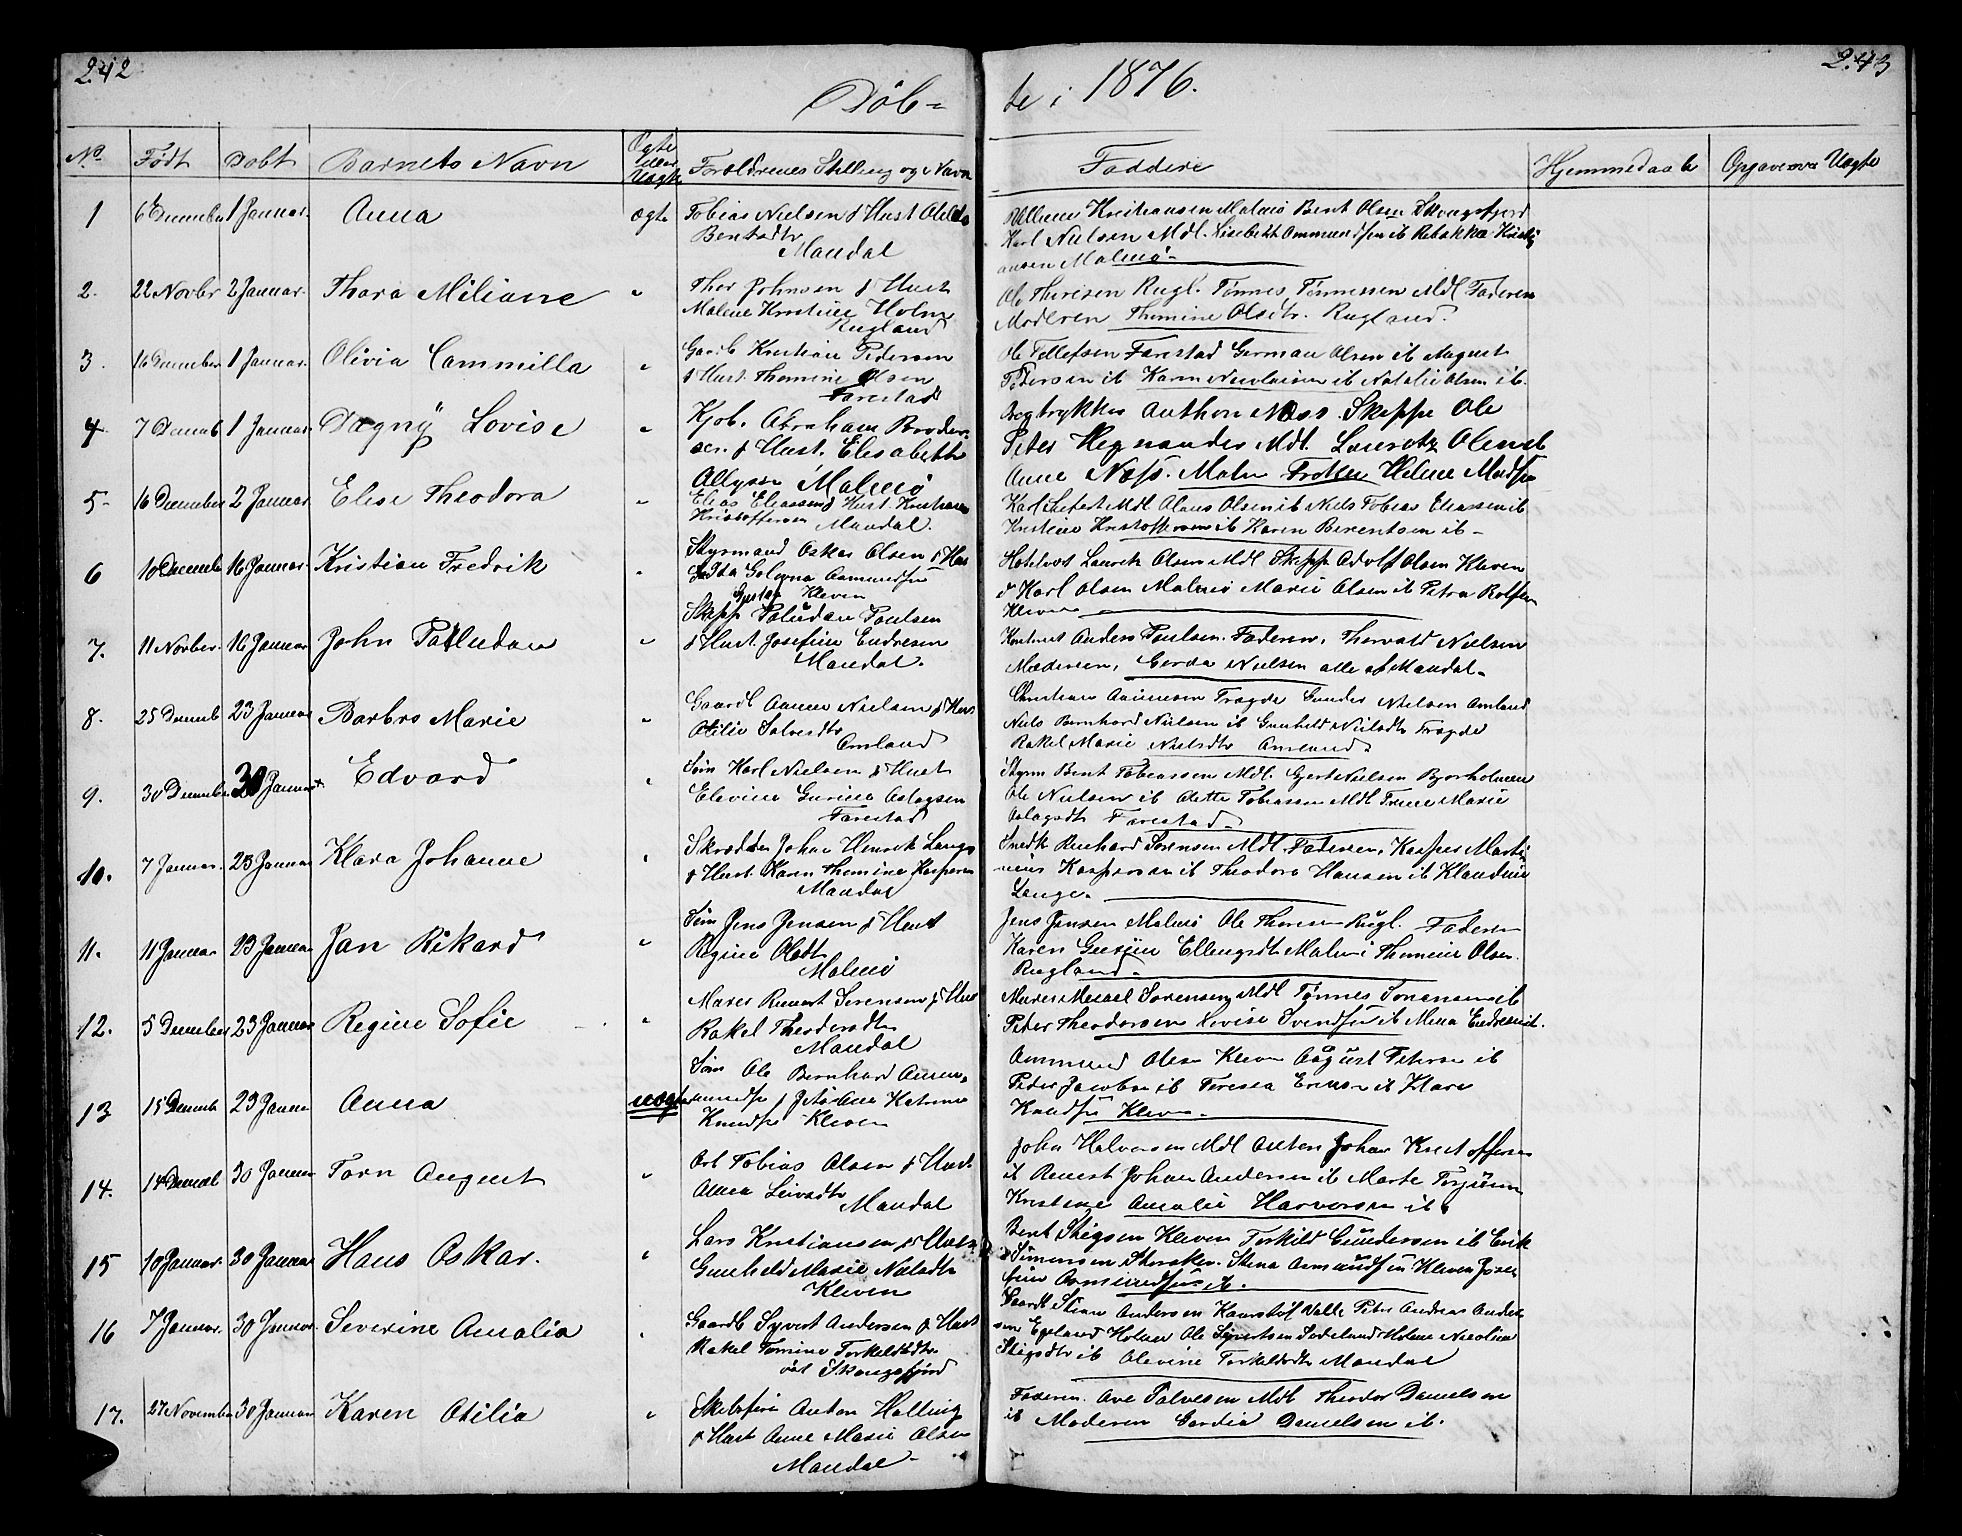 242
243
Døb-
te i 1876.
No Født Døbt Barnets Navn Ægte eller Uægte Forældrenes Stilling og Navn Faddere Hjemmedaab Opgave ova Uægte
1 6 December 1 Januar. Anna ægte Tobias Nielsen & Hust Otilda
Bentsdtr
Mandal
Kristiansen Malmø Bent Olsen Skongsfjord
Karl Nielsen Mdl. Lisebeth Ommundsen ib Rebekka Kristi
ansen Malmø
2. 22 Novbr 2 Januar. Thara Miliane " Thor Johnsen & Hust
Malene Kristine Holm
Rugland
Ole Thorisen Rugl. Tønnes Tønnessen Mdl Faderen
Moderen Thomine Olsdtr. Rugland.
3. 16 December 1 Januar. Olivia Cammilla " Gaardb Kristian Pedersen
& Hust. Thomine Olsen
Farestad
Ole Tellefsen Farestad German Olsen ib August
Pedersen ib Karen Nicolaisen ib Natalie Olsen ib.
4. 7 Decemb 1 Januar. Dagny Lovise " Kjøb. Abraham Broder
sen & Hust. Elisabeth
Malmø
Bogtrykker Anthon Næss. Skipper Ole
Peter Mdl. Lauretz Olsen ib
Anne Næss. Malmø Frøken Helene Madsen
5. 16 December 2 Januar. Elise Theodora " Elias Eliassen & Hust. Kristiane
Kristoffersen Mandal.
Karl Mdl Olaus Olsen ib Niels Tobias Eliassen ib
Kristine Kristoffersen ib Karen Berentsen ib
6 10 Decemb 16 Januar. Kristian Fredrik " Styrmand Oskar Olsen & Hus
Ida Golegna Aamundsen
Kleven
Hotelvert Laurits Olsen Mdl Skipp Adolf Olsen Kleven
& Karl Olsen Malmø Marie Olsen ib Petra Rolfsen
Kleven
7. 11 Novber. 16 Januar John Paludan " Skipp Paludan Poulsen
& Hust. Josefine Endresen
Mandal.
Anders Poulsen. Faderen, Thorvald Nielsen
Moderen, Gerda Nielsen alle af Mandal.
8. 25 Decemb 23 Januar Barbro Marie " Gaardb Aanen Nielsen & Hus
Otilie Salvesdtr
Omland
Christian Aanensen Tregde Gunder Nielsen Omland
Niels Bernhard Nielsen ib Gunhild Nielsdtr Tregde
Rakel Marie Nielsdtr Omland.
9. 30 December 30 Januar Edvard " Søm Karl Nielsen & Hust
Elevine Gurine Aslagsen
Farestad
Styrm Bent Tobiassen Mdl. Gjert Nielsen Bjorholmen
Ole Nielsen ib Aette Tobiassen Mdl Trine Marie
Aslagsdtr Farestad.
10. 7 Januar. 23 Januar Klara Johanne " Skrædder Johan Henrik Lange
& Hust Karen Thomine Kaspersen
Mandal
Snedk Reinhard Sørensen Mdl. Faderen, Kasper Marti
nius Kaspersen ib Theodora Hansen ib Klaudine
Lange.
11. 11 Januar 23 Januar Jan Rikard " Søm Jens Jensen & Hust
Regine Olsdtr
Malmø
Jens Jensen Malmø Ole Thorisen Rugl. Faderen
Karen Gusjine Ellingsdtr Malmø Thomine Olsen
Rugland.
12. 5 December 23 Januar Regine Sofie " Maser Sørensen & Hust
Rakel Theodorsdtr
Mandal
Murer Mikael Sørensen Mdl Tønnes Tønnesen ib
Peter Theodorsen Lovise Svendsen ib Mena Endresen ib.
13 15 Decemb 23 Januar Anna uægte Søm Ole Bernhard Amun-
mundsen & Pige Ane Katrine
Knudsen Kleven
Ommund Olsen Kleven August Petersen ib
Peder Jacobsen ib Teresia Eriksen ib Klara
Knudsen Kleven.
14. 14 Decemb 30 Januar Tørn August " Arb Tobias Olsen & Hust.
Anna Leivsdtr
Mandal
John Halvorsen Mdl Anton Johan Kristoffersen
ib Johan Andersen ib Marte Torjusen
Kristiane Amalie Halvorsen ib
15 10 Januar. 30 Januar Hans Oskar. " Lars Kristiansen & Hust
Gunhild Marie Nielsdtr
Kleven
Bent Stigsen Kleven Torkild Gundersen ib Erik
Simensen Stina Aamundsen Kleven Jose
fine Aamundsen ib.
16 7 Januar. 30 Januar. Severine Amalia " Gaardb Syvert Andersen & Hust
Rakel Tomine Torkeldsdtr
Skongsfjord
Gaardb Stian Andersen Valle Peter Andreas Ander
sen Egeland Holum Ole Syvertsen Sodeland Malene Nicoline
Stigsdtr ib Olevine Torkelsdtr Mandal
17. 27 November 30 Januar Karen Otilia " Anton Halling
& Hust Anne Marie Olsen
Mandal
Faderen. Ave Salvesen Mdl Theodor Danielsen
ib Moderen Gerdia Danielsen ib.